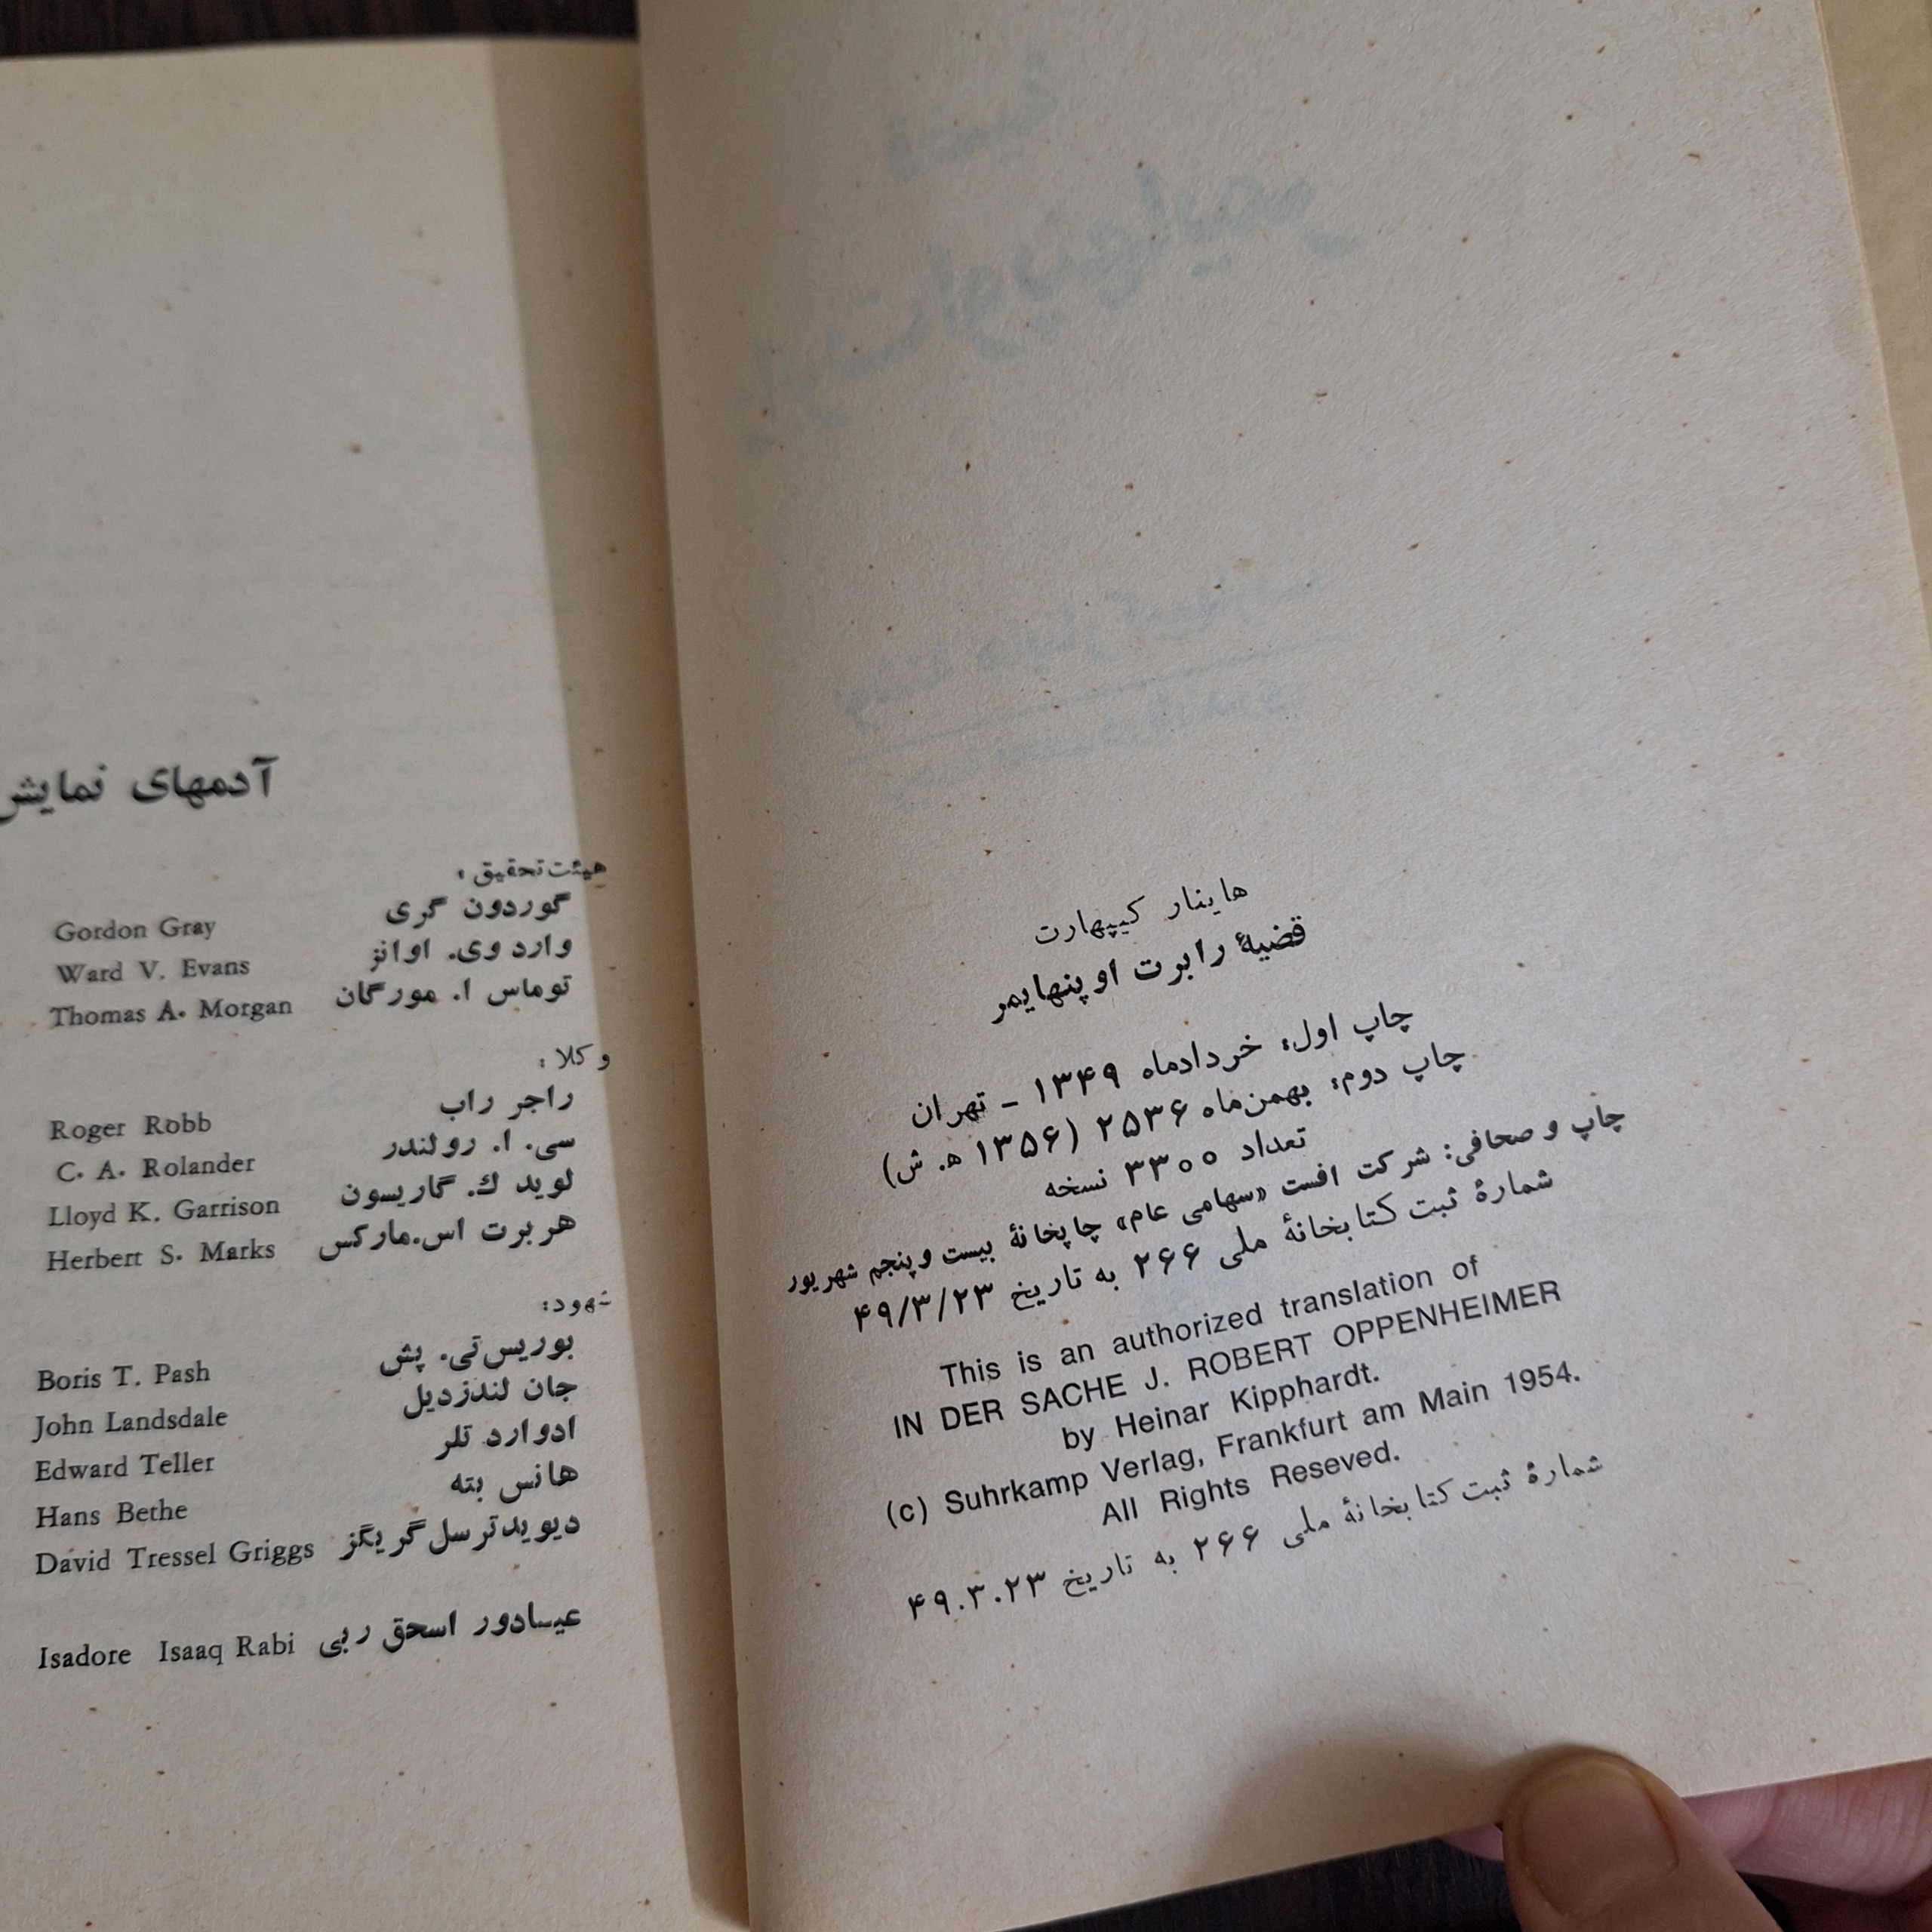 هاینار کیپهارت
قضیهٔ رابرت اوپنهایمر
چاپ اول: خردادماه ۱۳۴۹ – تهران
چاپ دوم: بهمن‌ماه ۲۵۳۶ (۱۳۵۶ ه‍. ش)
تعداد ۳۳۰۰ نسخه
چاپ و صحافی: شرکت افست «سهامی عام» چاپخانهٔ بیست و پنجم شهریور
شمارهٔ ثبت کتابخانهٔ ملی ۲۶۶ به تاریخ ۴۹/۳/۲۳
This is an authorized translation of
IN DER SACHE J. ROBERT OPPENHEIMER
by Heinar Kipphardt.
(c) Suhrkamp Verlag, Frankfurt am Main 1954.
All Rights Reseved.
شمارهٔ ثبت کتابخانهٔ ملی ۲۶۶ به تاریخ ۴۹.۳.۲۳
آدمهای نمایش
هیئت تحقیق:
گوردون گری Gordon Gray
وارد وی. اوانز Ward V. Evans
توماس ا. مورگان Thomas A. Morgan
وکلا:
راجر راب Roger Robb
سی. ا. رولندر C. A. Rolander
لوید ك. گاریسون Lloyd K. Garrison
هربرت اس. مارکس Herbert S. Marks
شهود:
بوریس تی. پش Boris T. Pash
جان لندزدیل John Landsdale
ادوارد تلر Edward Teller
هانس بته Hans Bethe
دیوید ترسل گریگز David Tressel Griggs
عیسادور اسحق ربی Isadore Isaaq Rabi